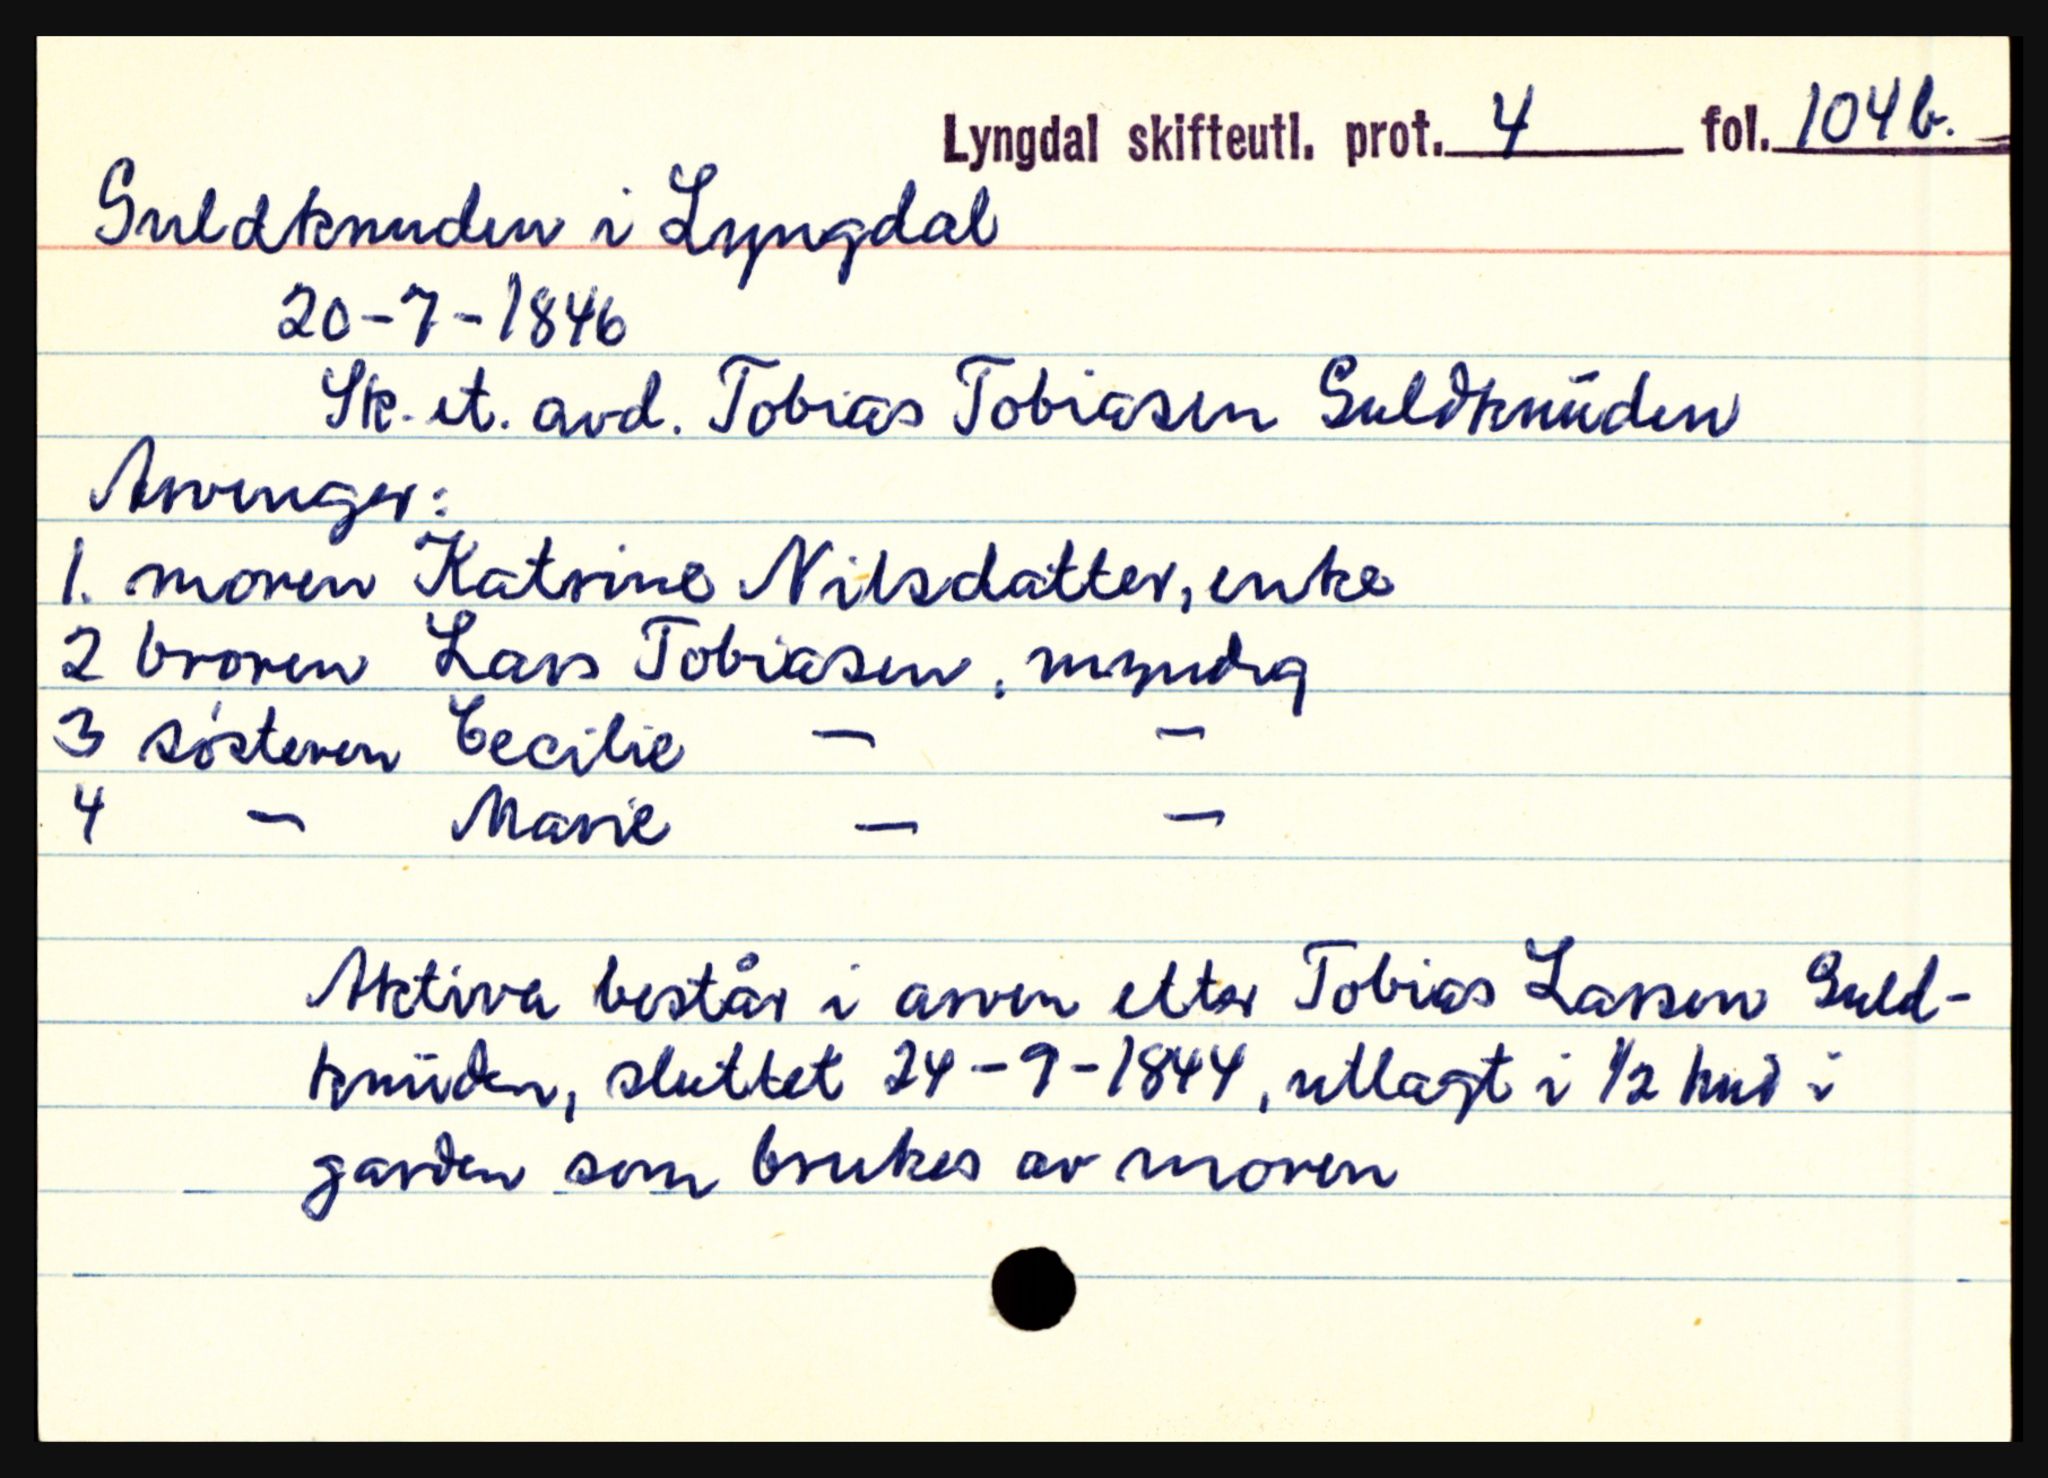 Lyngdal skifteutl. prot. 4 fol. 104 b.
Guldknuden i Lyngdal
20-7-1846
Sk. et. avd. Tobias Tobiasen Guldknüden
Arvinger:
1. moren Katrine Nilsdatter, enke
2 broren Lars Tobiasen, myndig
3 søsteren Cecilie — —
4 — Marie — —
Aktiva består i arven etter Tobias Larsen Guld-
knüden, sluttet 24-9-1844, utlagt i 1/2 hud i
garden som brukes av moren